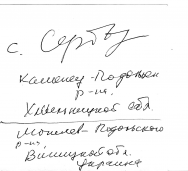 с. Сербы
Каменец-Подольск
р-на.
Хмельницкой обл
Могилев-Подольского
р-на
Винницкой обл.
Украина